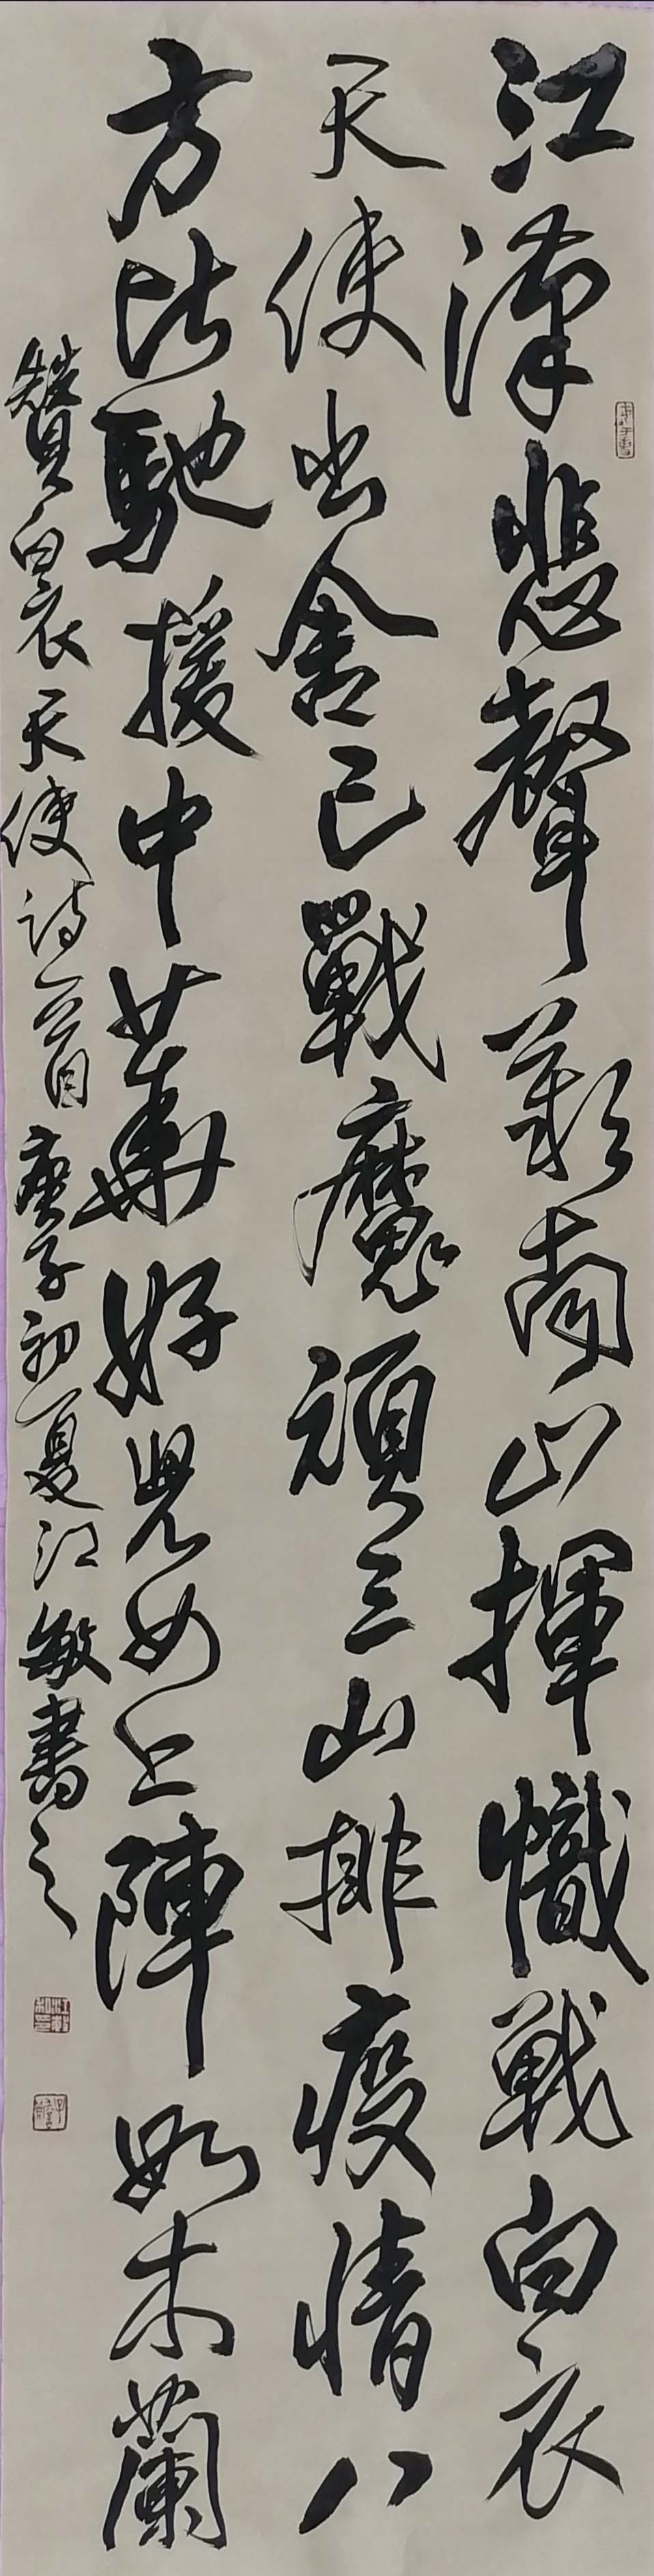 江漢悲聲義南山揮幟戰白衣
天使出舍己戰魔頑三山排疫情八
方皆馳援中華好兒女上陣如木蘭
贊白衣天使詩一首庚子初夏江敏書之